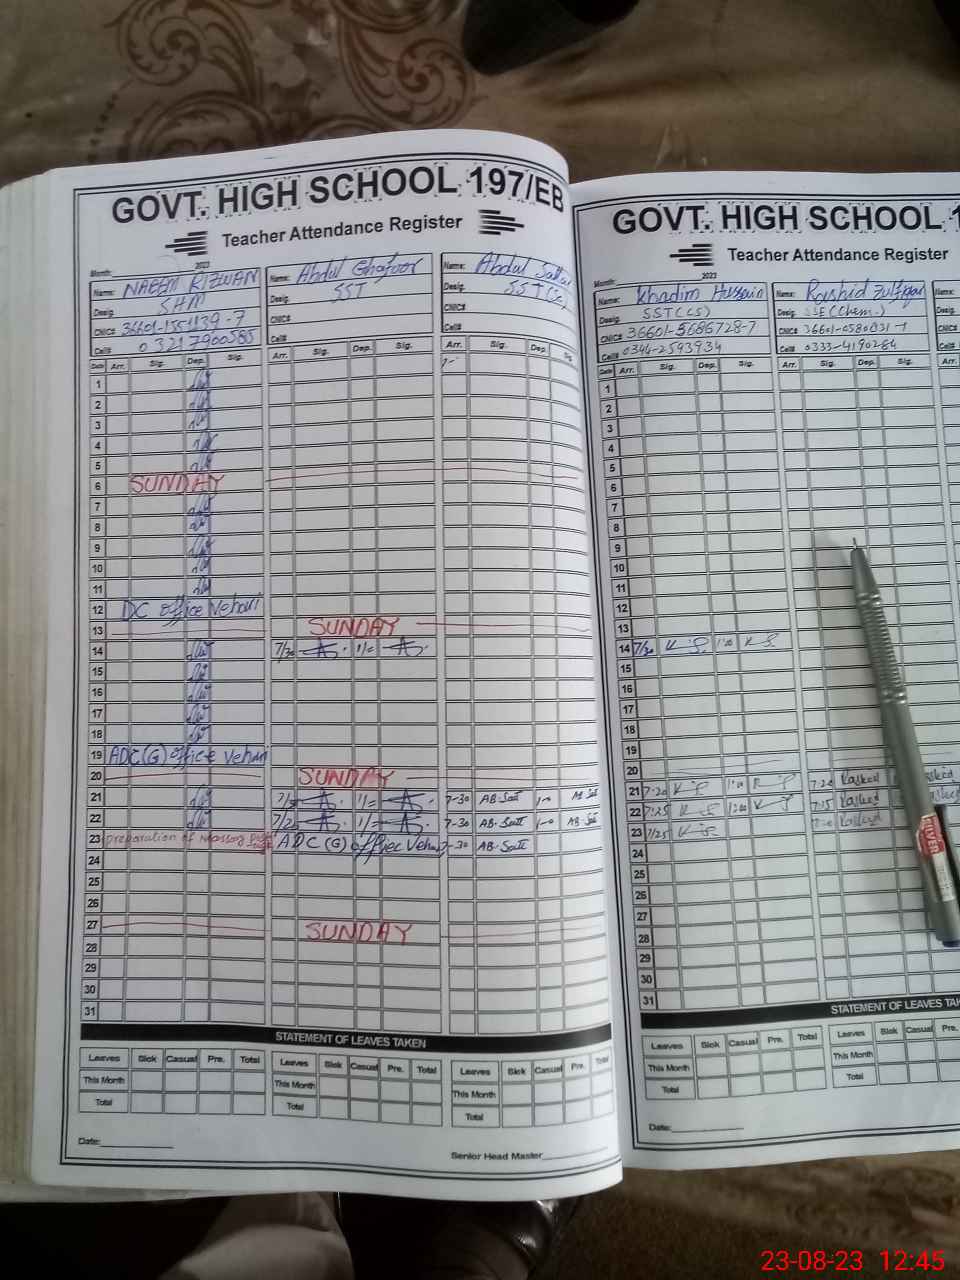 GOVT. HIGH SCHOOL 197/EB
Teacher Attendance Register
Month: 2023
Name: NAEEM RIZWAN Name: Abdul Ghafoor Name: Abdul Sattar
Desig. SHM Desig. SST Desig. SST(Sc)
CNIC# 36601-1551139-7 CNIC# CNIC#
Cell# 0321 7900585 Cell# Cell#
Date Arr. Sig. Dep. Sig. Arr. Sig. Dep. Sig. Arr. Sig. Dep. Sig.
1
2
3
4
5
6 SUNDAY
7
8
9
10
11
12 DC office Vehari
13 SUNDAY
14 7/30 1/=
15
16
17
18
19 ADC(G) office Vehari
20 SUNDAY
21 7/30 1/= 7-30 AB.Satt 1-0 AB.Satt
22 7/25 1/= 7-30 AB.Satt 1-0 AB.Satt
23 preparation of ADC(G) office Vehari 7-30 AB.Satt
24
25
26
27 SUNDAY
28
29
30
31
STATEMENT OF LEAVES TAKEN
Leaves Sick Casual Pre. Total Leaves Sick Casual Pre. Total Leaves Sick Casual Pre. Total
This Month This Month This Month
Total Total Total
Date:
Senior Head Master
GOVT. HIGH SCHOOL 1
Teacher Attendance Register
Month: 2023
Name: Khadim Hussain Name: Rashid Zulfiqar Name:
Desig. SST(CS) Desig. SSE(Chem.) Desig.
CNIC# 36601-5686728-7 CNIC# 36601-0580831-1 CNIC#
Cell# 0344-2593934 Cell# 0333-4190284 Cell#
Date Arr. Sig. Dep. Sig. Arr. Sig. Dep. Sig. Arr.
1
2
3
4
5
6
7
8
9
10
11
12
13
14 7/30 1:00
15
16
17
18
19
20
21 7:20 1:00 7:20 Rashid
22 7:25 1:00 7:15 Rashid
23 7/25 Rashid
24
25
26
27
28
29
30
31
STATEMENT OF LEAVES TAK
Leaves Sick Casual Pre. Total Leaves Sick Casual Pre.
This Month This Month
Total Total
Date:
SILVER
23-08-23 12:45